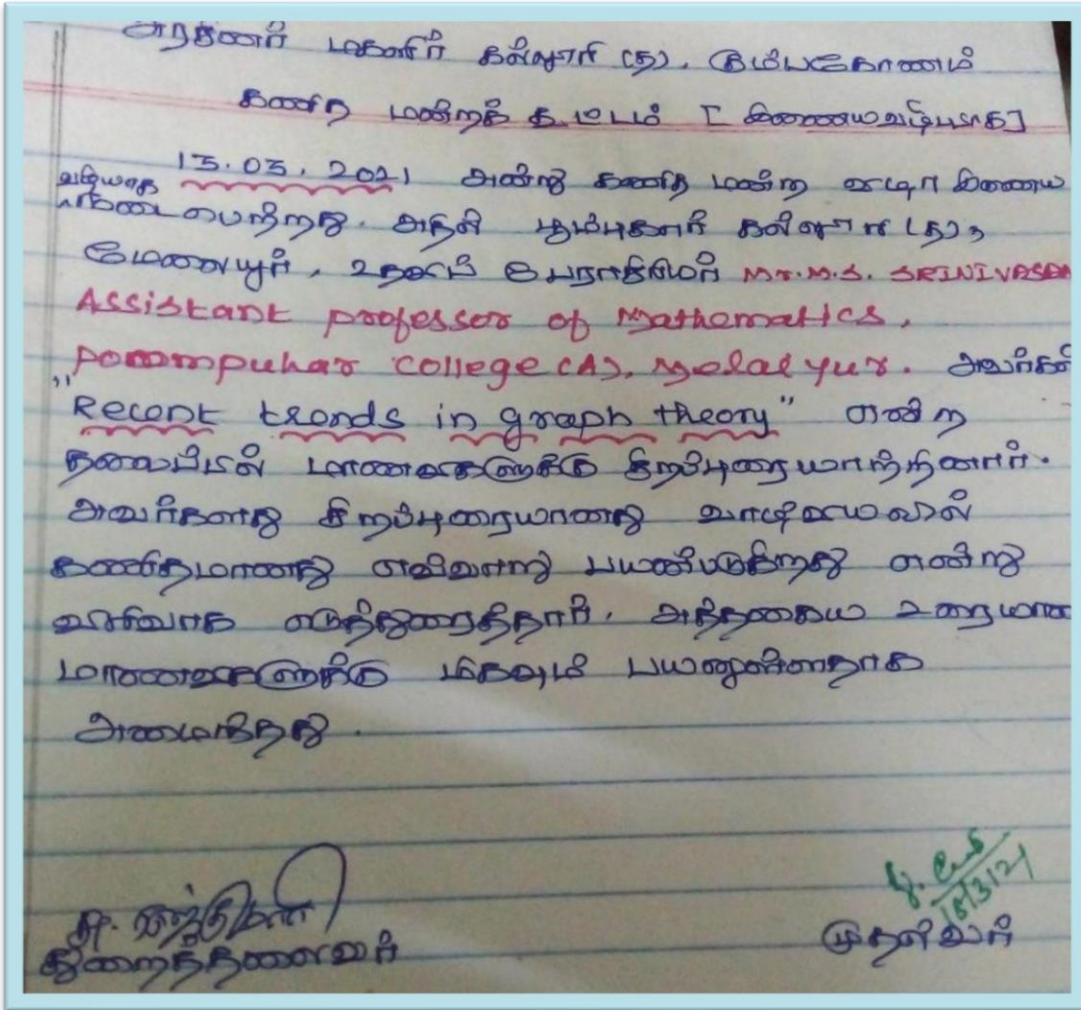 அரசினர் மகளிர் கல்லூரி (த), கும்பகோணம்
கணித மன்றக் கூட்டம் [இணையவழியாக]
15.03.2021 அன்று கணித மன்ற விழா இணைய
வழியாக நடைபெற்றது. அதில் பூம்புகார் கல்லூரி (த),
மேலையூர், உதவிப் பேராசிரியர் Mr. M.S. SRINIVASAN
Assistant professor of Mathematics,
poompuhar College (A), Melaiyur. அவர்கள்
"Recent trends in graph theory" என்ற
தலைப்பில் மாணவிகளுக்கு சிறப்புரையாற்றினார்.
அவர்களது சிறப்புரையானது வாழ்வியலில்
கணிதமானது எவ்வாறு பயன்படுகிறது என்று
விரிவாக எடுத்துரைத்தார். அத்தகைய உரையான
மாணவிகளுக்கு மிகவும் பயனுள்ளதாக
அமைந்தது.
18/3/21
துறைத்தலைவர்
முதல்வர்